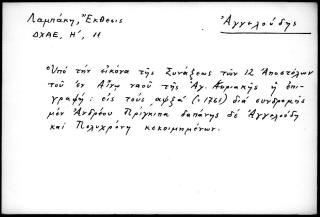 Λαμπάκη, "Έκθεσις
Ἀγγελούδης
ΔΧΑΕ, Η', 11
Ὑπό τήν εἰκόνα τῆς Συνάξεως τῶν 12 Ἀποστόλων
τοῦ ἐν Αἴνῳ ναοῦ τῆς Ἁγ. Κυριακῆς ἡ ἐπι-
γραφή: εἰς τούς ,αψξα' (=1761) διά συνδρομῆς
μέν Ἀνδρέου Πρίγκιπα δαπάνης δέ Ἀγγελούδη
καί Πολυχρόνη κεκοιμημένων.